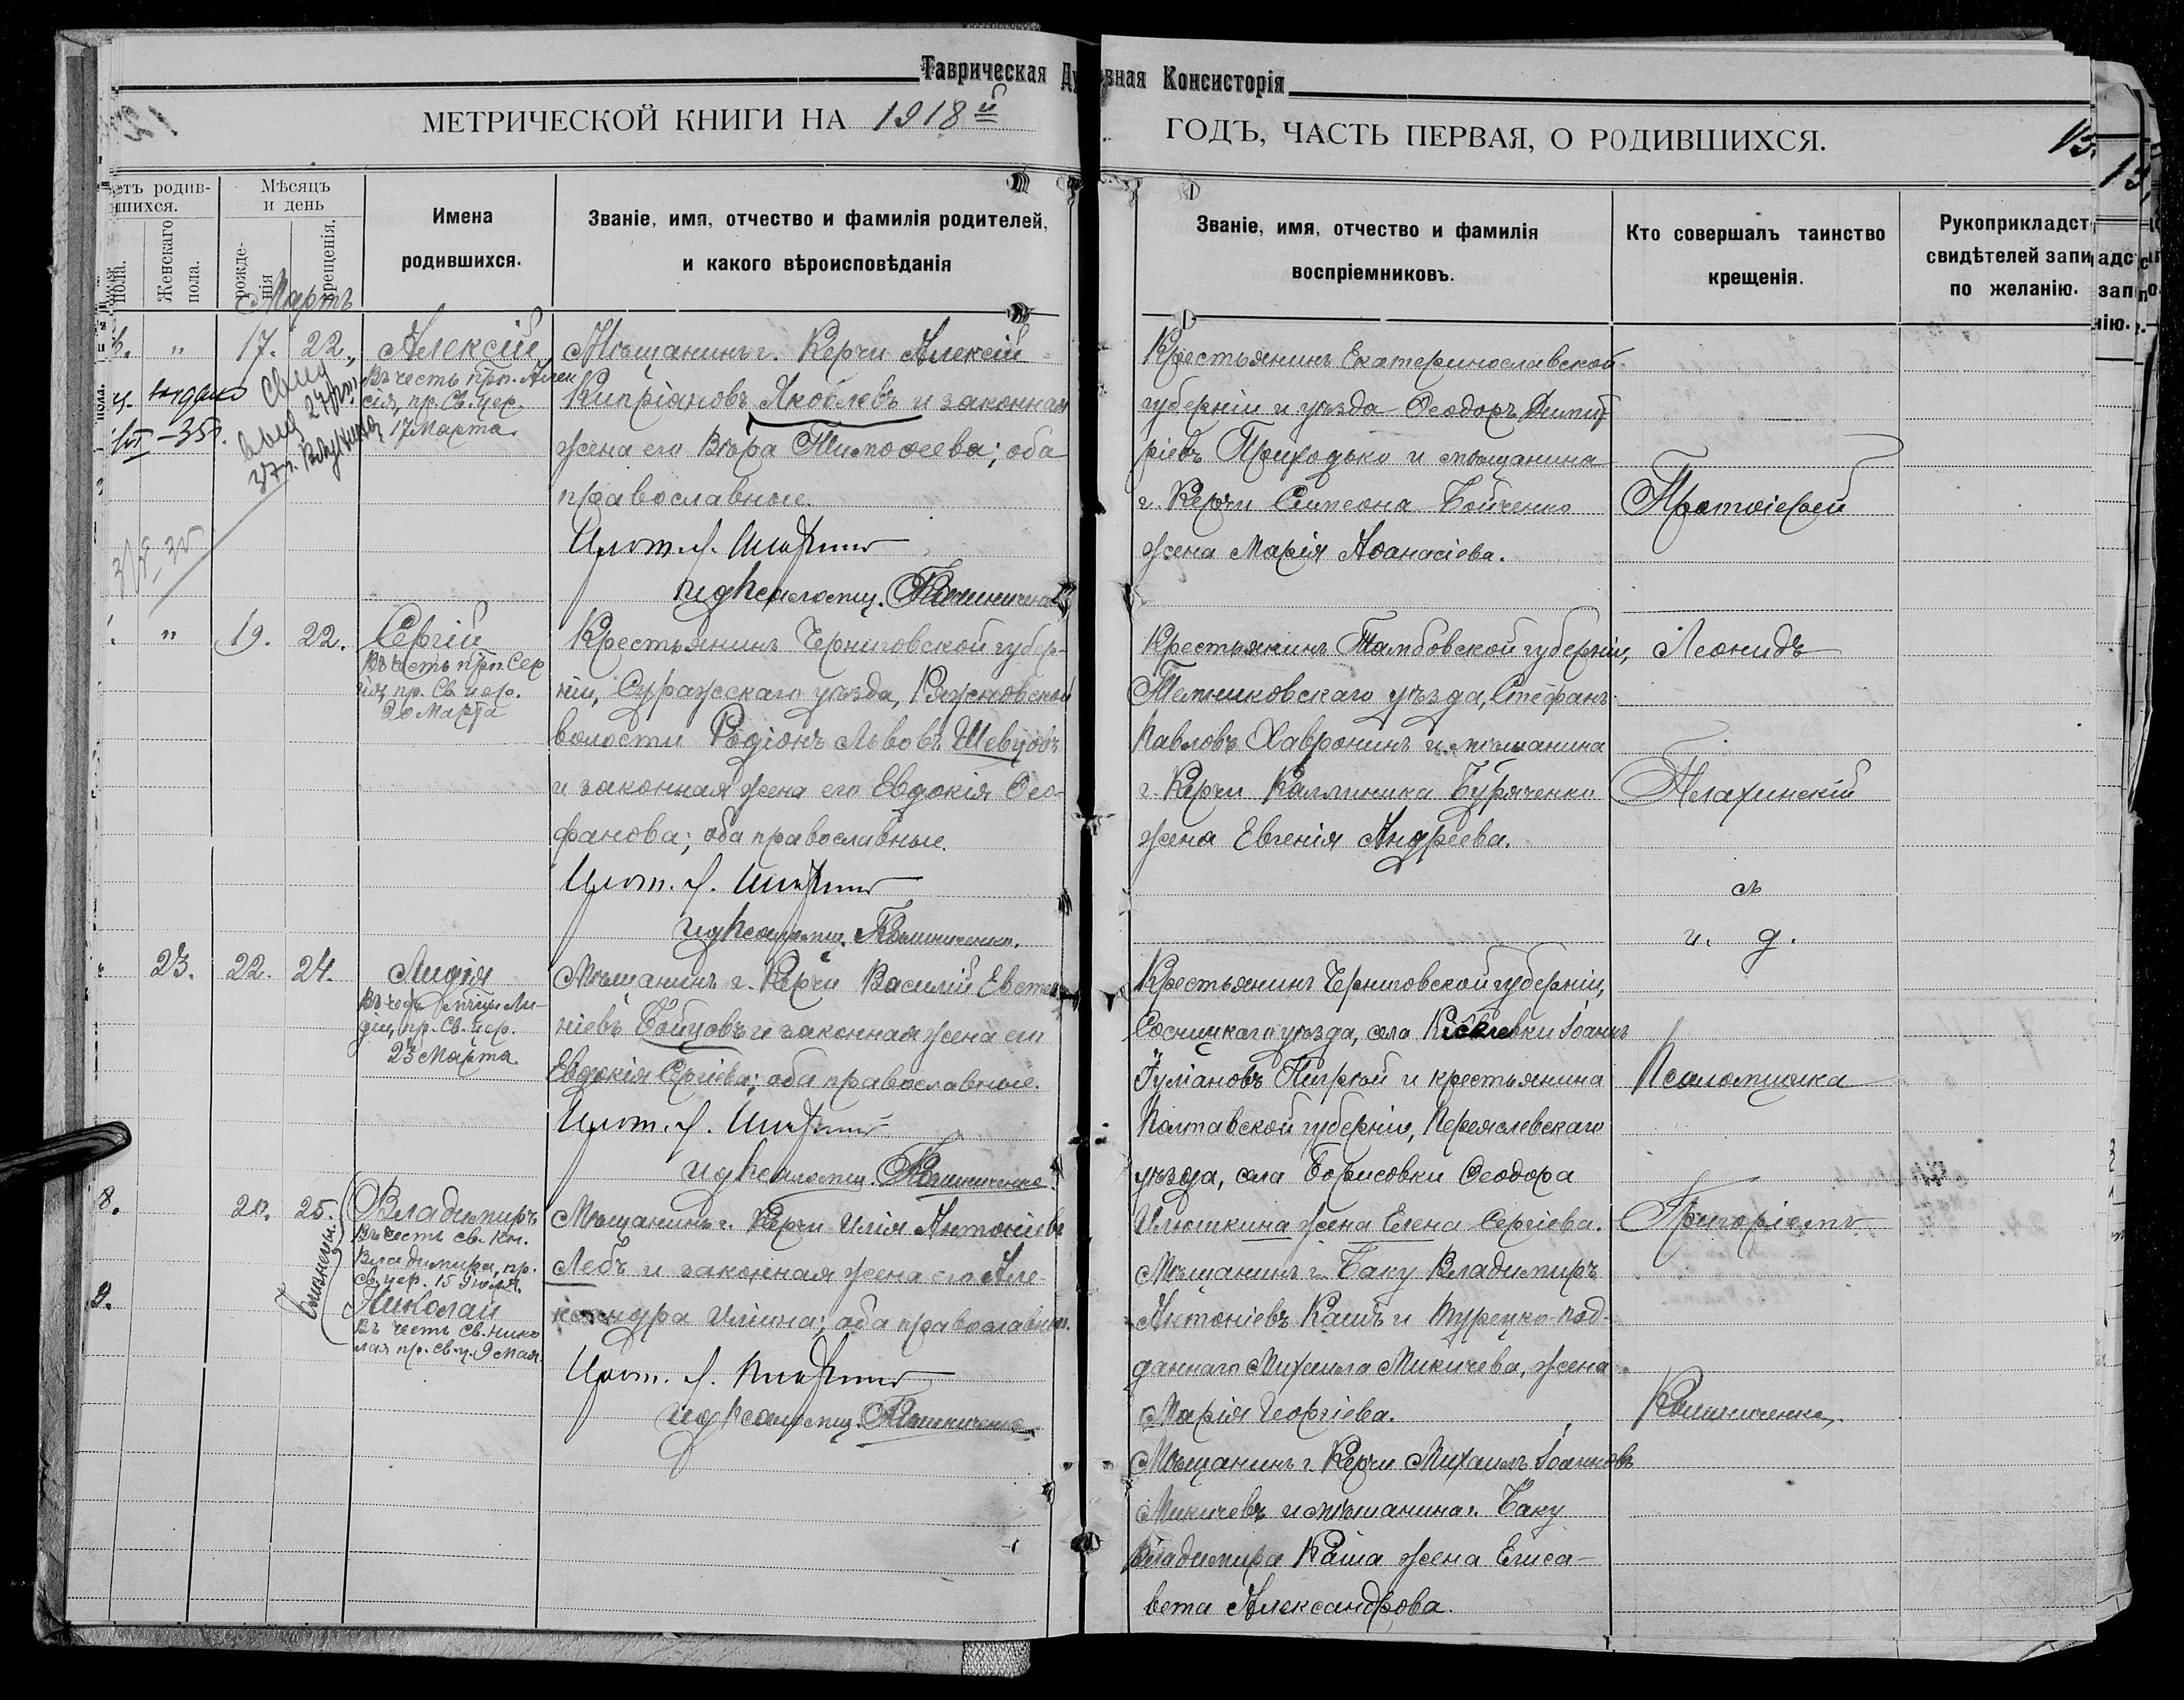 Таврическая Духовная Консисторія
МЕТРИЧЕСКОЙ КНИГИ НА 1918й
ГОДЪ, ЧАСТЬ ПЕРВАЯ, О РОДИВШИХСЯ.
етъ родив-
шихся.
пола.
Женскаго
пола.
Мѣсяцъ
и день
рожде-
нія
крещенія.
Имена
родившихся.
Званіе, имя, отчество и фамилія родителей,
и какого вѣроисповѣданія
Званіе, имя, отчество и фамилія
воспріемниковъ.
Кто совершалъ таинство
крещенія.
Рукоприкладст
свидѣтелей запи
по желанію.
Мартъ
17. 22.
Алексій
Въ честь прп. Алек
сія, пр. Св. цер.
17 Марта.
Мѣщанинъ г. Керчи Алексій
Кипріановъ Яковлевъ и законная
жена его Вѣра Тимоѳеева; оба
православные.
Крестьянинъ Екатеринославской
губерніи и уѣзда Ѳеодоръ Димит
ріевъ Приходько и мѣщанина
г. Керчи Симеона Бойченко
жена Марія Аѳанасіева.
Протоіерей
19. 22.
Сергій
Въ честь прп. Сер
гія, пр. Св. цер.
20 Марта
Крестьянинъ Черниговской губер-
ніи, Суражскаго уѣзда,
волости Родіонъ Львовъ Шевцовъ
и законная жена его Евдокія Ѳео-
фанова; оба православные.
Крестьянинъ Тамбовской губерніи,
Темниковскаго уѣзда, Стефанъ
Павловъ Хавронинъ и мѣщанина
г. Керчи Каллиника Буряченко
жена Евгенія Андреева.
Леонидъ
съ
и. д.
23. 22. 24.
Лидія
Въ честь мчцы Ли
діи, пр. Св. цер.
23 Марта.
Мѣщанинъ г. Керчи Василій
ніевъ Бойцовъ и законная жена его
Евдокія Сергіева; оба православные.
Крестьянинъ Черниговской губерніи,
Сосницкаго уѣзда, села Іоаннъ
Іуліановъ и крестьянина
Полтавской губерніи, Переяслевскаго
уѣзда, села Борисовки Ѳеодора
Илюшкина жена Елена Сергіева.
Псаломщика
Григоріемъ
8. 20. 25.
Близнецы
Владимиръ
Въ честь Св. Кн.
Владимира, пр.
Св. цер. 15 Іюля.
9.
Николай
Въ честь Св. Нико
лая пр. Св. ц. 9 Мая.
Мѣщанинъ г. Керчи Илія Антоніевъ
Лебъ и законная жена его Але-
ксандра Иліина; оба православные.
Мѣщанинъ г. Баку Владимиръ
Антоніевъ Кашъ и Турецко-под-
даннаго Михаила Микичева, жена
Марія Георгіева.
Мѣщанинъ г. Керчи Михаилъ Іоанновъ
Микичевъ и мѣщанина г. Баку
Владимира Каша жена Елиса-
вета Александрова.